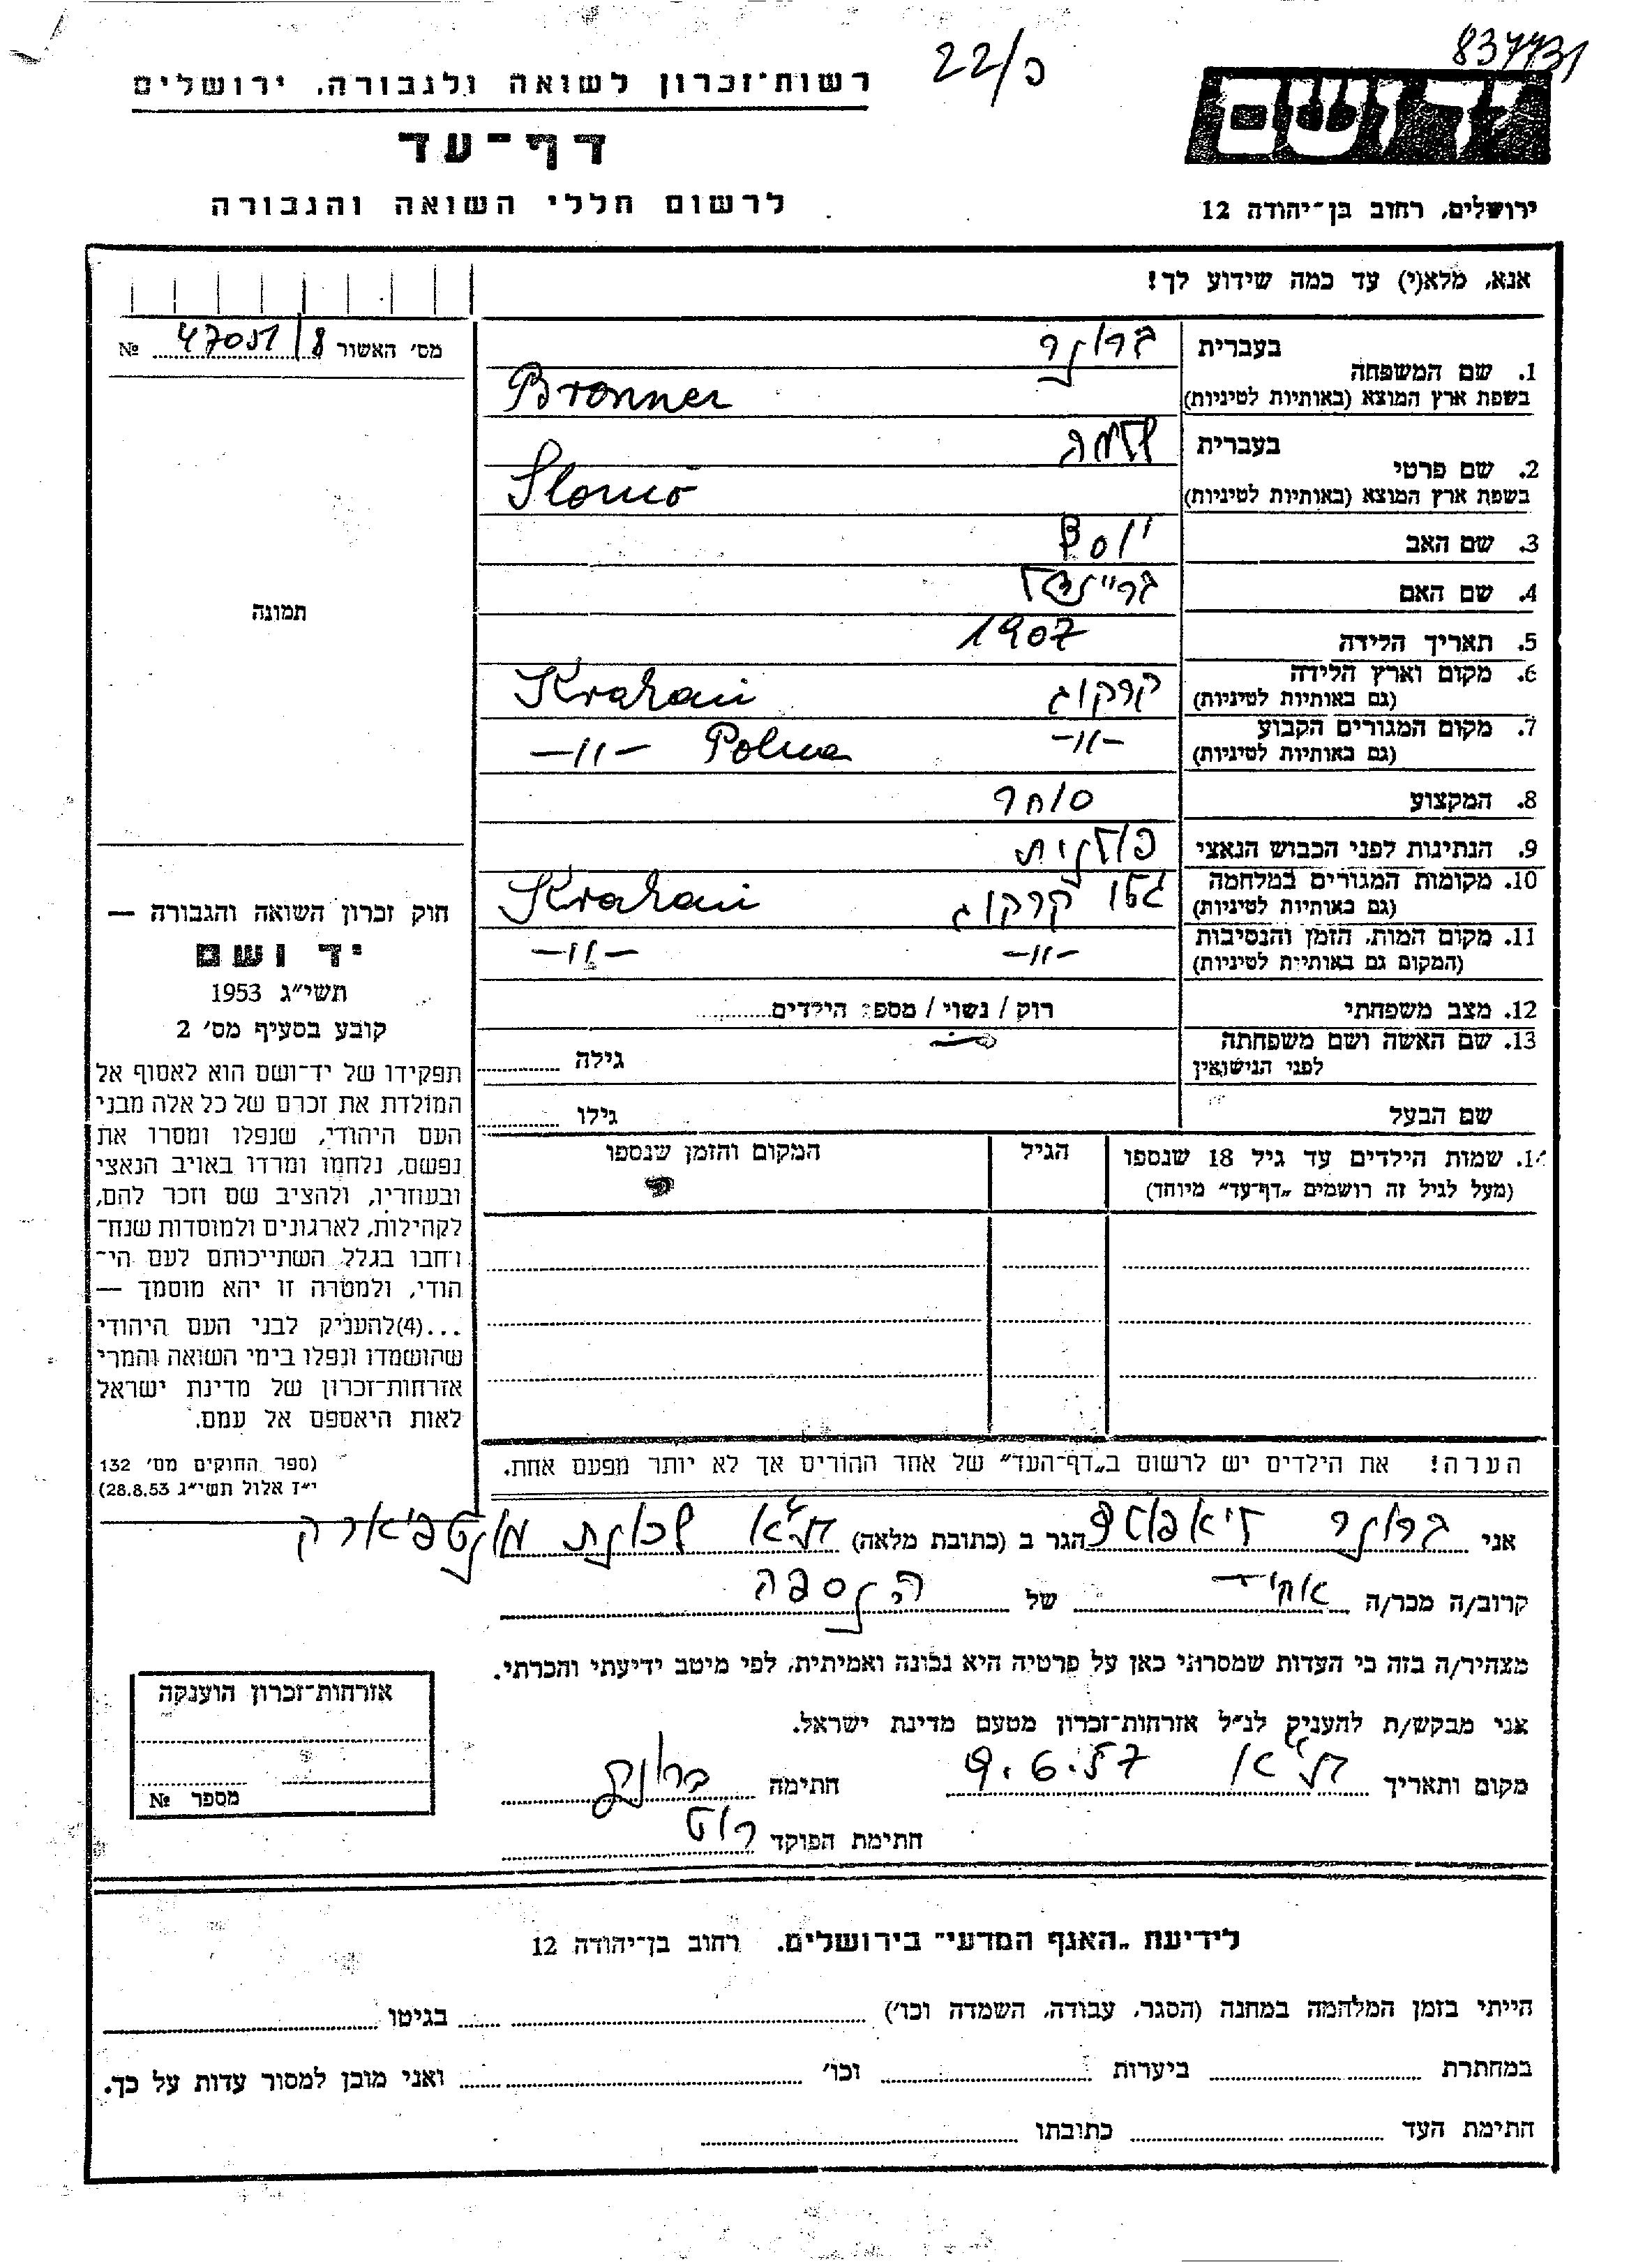 837731
22/כ
יד ושם
רשות־זכרון לשואה ולגבורה, ירושלים
דף־עד
לרשום חללי השואה והגבורה
ירושלים, רחוב בן־יהודה 12
אנא, מלא(י) עד כמה שידוע לך!
מס׳ האשור 47051/8 №
בעברית ברונר
1. שם המשפחה
בשפת ארץ המוצא (באותיות לטיניות) Bronner
בעברית שלמה
2. שם פרטי
בשפת ארץ המוצא (באותיות לטיניות) Slomo
3. שם האב יוסף
4. שם האם
5. תאריך הלידה 1907
6. מקום וארץ הלידה
(גם באותיות לטיניות) קרקוב Krakau
7. מקום המגורים הקבוע
(גם באותיות לטיניות) -״- -״- Polna
8. המקצוע סוחר
9. הנתינות לפני הכבוש הנאצי פולנית
10. מקומות המגורים במלחמה
(גם באותיות לטיניות) גטו קרקוב Krakau
11. מקום המות, הזמן והנסיבות
(המקום גם באותיות לטיניות) -״- -״-
12. מצב משפחתי רוק / נשוי / מספר הילדים
13. שם האשה ושם משפחתה
לפני הנישואין גילה
שם הבעל גילו
14. שמות הילדים עד גיל 18 שנספו הגיל המקום והזמן שנספו
(מעל לגיל זה רושמים „דף־עד״ מיוחד)
הערה! את הילדים יש לרשום ב„דף־העד״ של אחד ההורים אך לא יותר מפעם אחת.
תמונה
חוק זכרון השואה והגבורה —
יד ושם
תשי״ג 1953
קובע בסעיף מס׳ 2
תפקידו של יד־ושם הוא לאסוף אל
המולדת את זכרם של כל אלה מבני
העם היהודי, שנפלו ומסרו את
נפשם, נלחמו ומרדו באויב הנאצי
ובעוזריו, ולהציב שם וזכר להם,
לקהילות, לארגונים ולמוסדות שנח־
רבו בגלל השתייכותם לעם הי־
הודי, ולמטרה זו יהא מוסמך —
...(4)להעניק לבני העם היהודי
שהושמדו ונפלו בימי השואה והמרי
אזרחות־זכרון של מדינת ישראל
לאות היאספם אל עמם.
(ספר החוקים מס׳ 132
י״ז אלול תשי״ג 28.8.53)
אני ברונר הגר ב (כתובת מלאה) ת״א שכונת מונטפיורי
קרוב/ה מכר/ה של הנספה
מצהיר/ה בזה כי העדות שמסרתי כאן על פרטיה היא נכונה ואמיתית, לפי מיטב ידיעתי והכרתי.
אני מבקש/ת להעניק לנ״ל אזרחות־זכרון מטעם מדינת ישראל.
מקום ותאריך ת״א 9.6.57 חתימה ברונר
חתימת הפוקד
אזרחות־זכרון הוענקה
מספר №
לידיעת „האגף המדעי״ בירושלים, רחוב בן־יהודה 12
הייתי בזמן המלחמה במחנה (הסגר, עבודה, השמדה וכו׳) בגיטו
במחתרת ביערות וכו׳ ואני מוכן למסור עדות על כך.
חתימת העד כתובתו